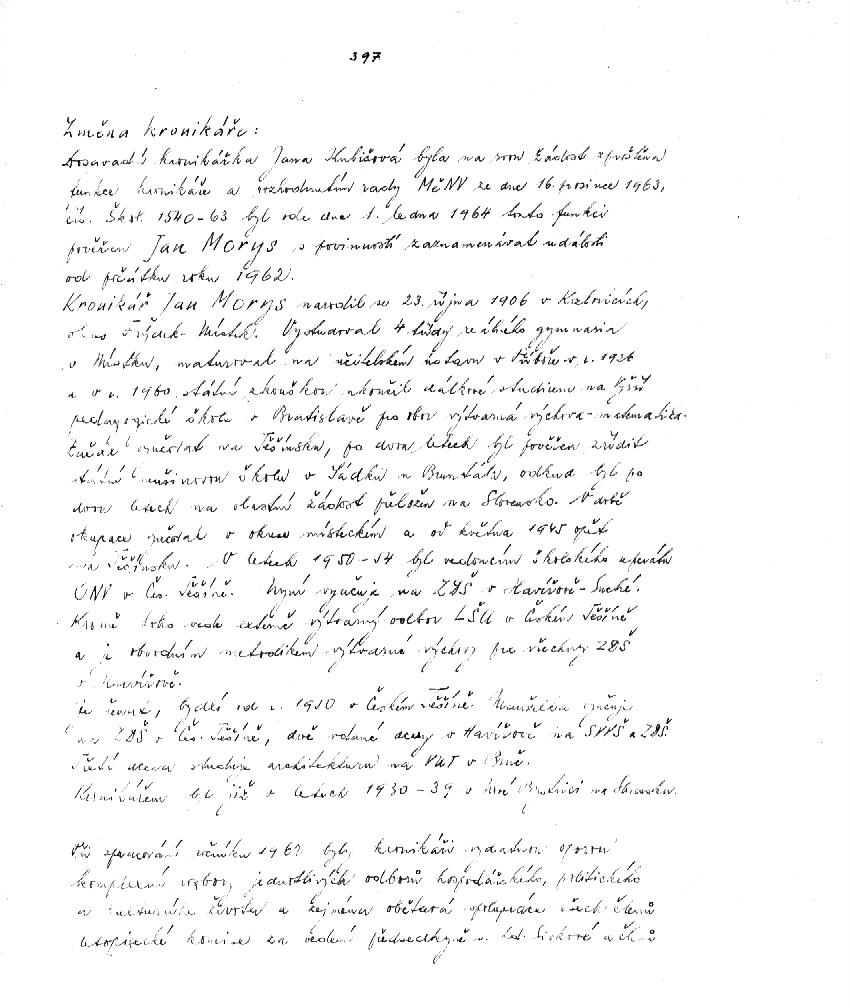 397
Změna kronikáře:
Dosavadní kronikářka Jana Kubišová byla na svou žádost zproštěna
funkce kronikáře a rozhodnutím rady MěNV ze dne 16. prosince 1963,
čís. Škol. 1540-63 byl ode dne 1. ledna 1964 touto funkcí
pověřen Jan Morys s povinností zaznamenávat události
od počátku roku 1962.
Kronikář Jan Morys narodil se 23. října 1906 v Kozlovicích,
okres Frýdek-Místek. Vystudoval 4 třídy reálného gymnasia
v Místku, maturoval na učitelském ústavu v Příboře v r. 1926
a v r. 1960 státní zkouškou ukončil dálkové studium na Vyšší
pedagogické škole v Bratislavě pro obor výtvarná výchova-matematika.
Začal vyučovat na Těšínsku, po dvou letech byl pověřen zřídit
státní menšinovou školu v Sádku u Bruntálu, odkud byl po
dvou letech na vlastní žádost přeložen na Slovensko. V době
okupace učil v okrese místeckém a od května 1945 opět
na Těšínsku. V letech 1950-54 byl vedoucím školského aparátu
ONV v Čes. Těšíně. Nyní vyučuje na ZDŠ v Havířově-Suché.
Kromě toho vede externě výtvarný odbor LŠU v Českém Těšíně
a je obvodním metodikem výtvarné výchovy pro všechny ZDŠ
v Havířově.
Je ženat, bydlí od r. 1950 v Českém Těšíně. Manželka vyučuje
na ZDŠ v Čes. Těšíně, dvě vdané dcery v Havířově na SVVŠ a ZDŠ.
Třetí dcera studuje architekturu na VUT v Brně.
Kronikářem byl již v letech 1930-39 v Nové Bystrici na Slovensku.
Při zpracování ročníku 1962 byly kronikáři vydatnou oporou
komplexní rozbory jednotlivých odborů hospodářského, politického
a kulturního života a zejména obětavá spolupráce všech členů
letopisecké komise za vedení předsedkyně s. Lid. a členů